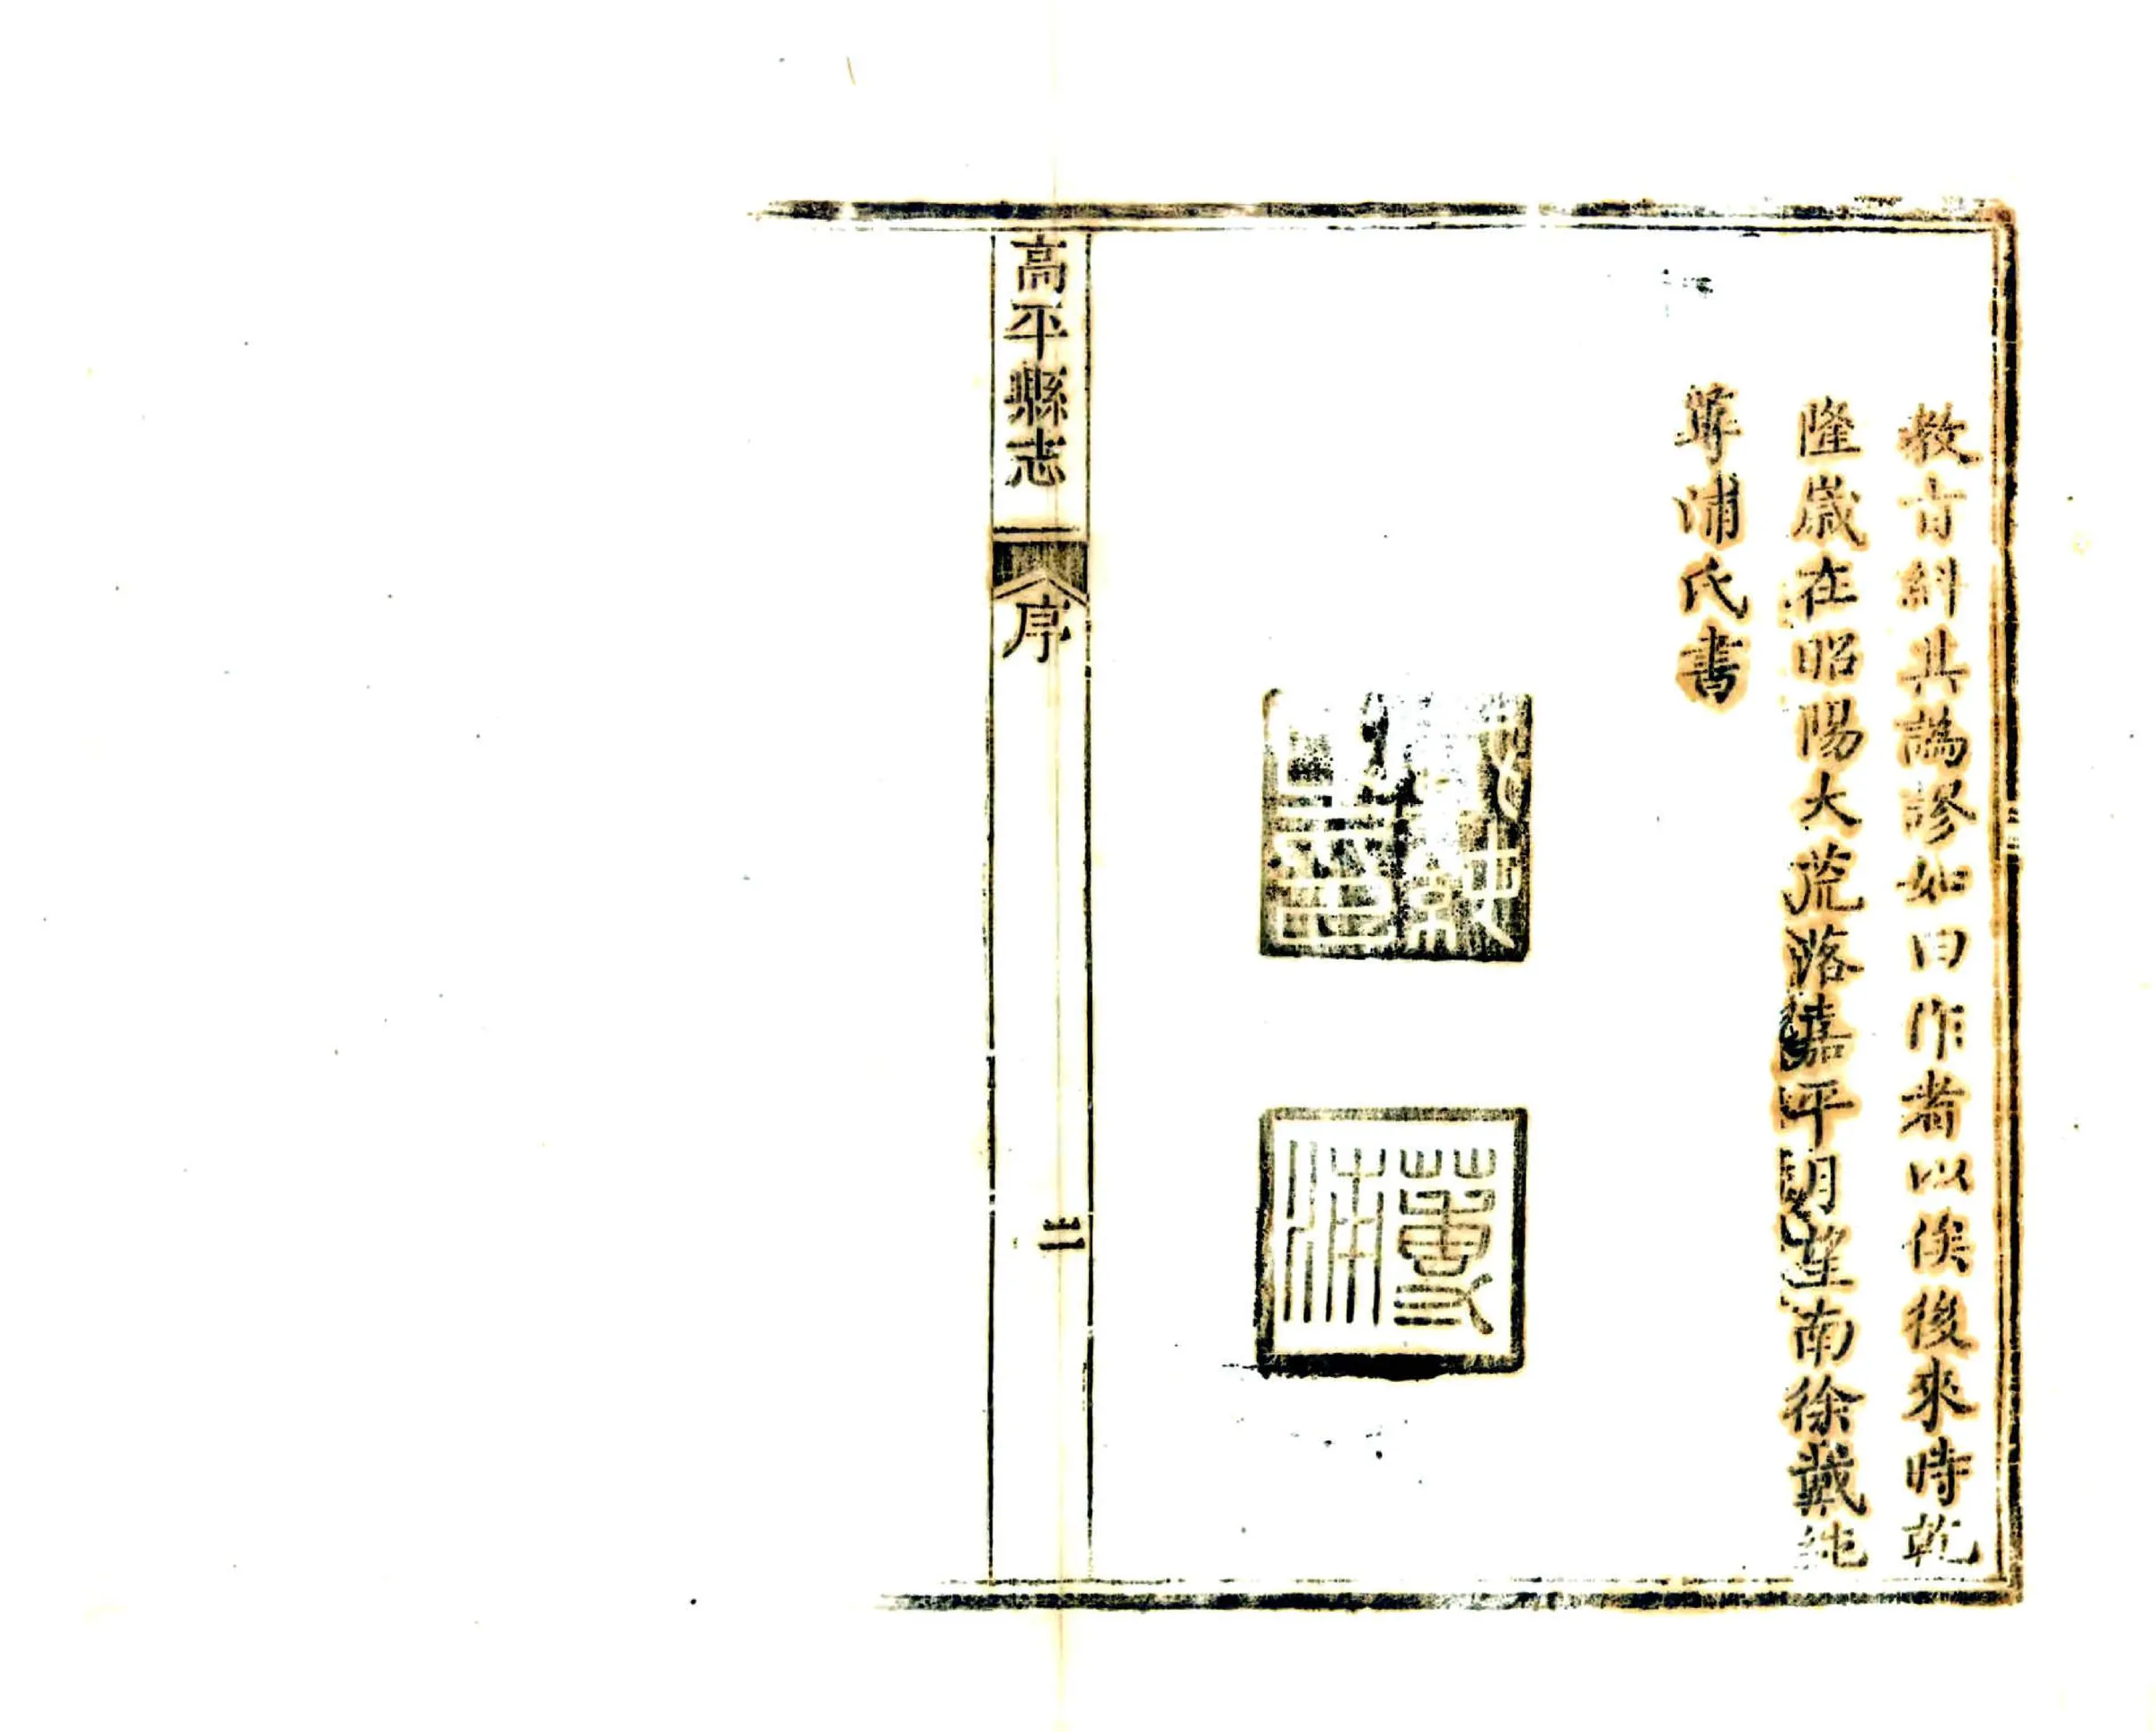 教盲糾其譌謬如曰作者以俟後來時乾
隆歲在昭陽大荒落嘉平月望南徐戴純
蓴浦氏書
高平縣志
序
二
蓴浦